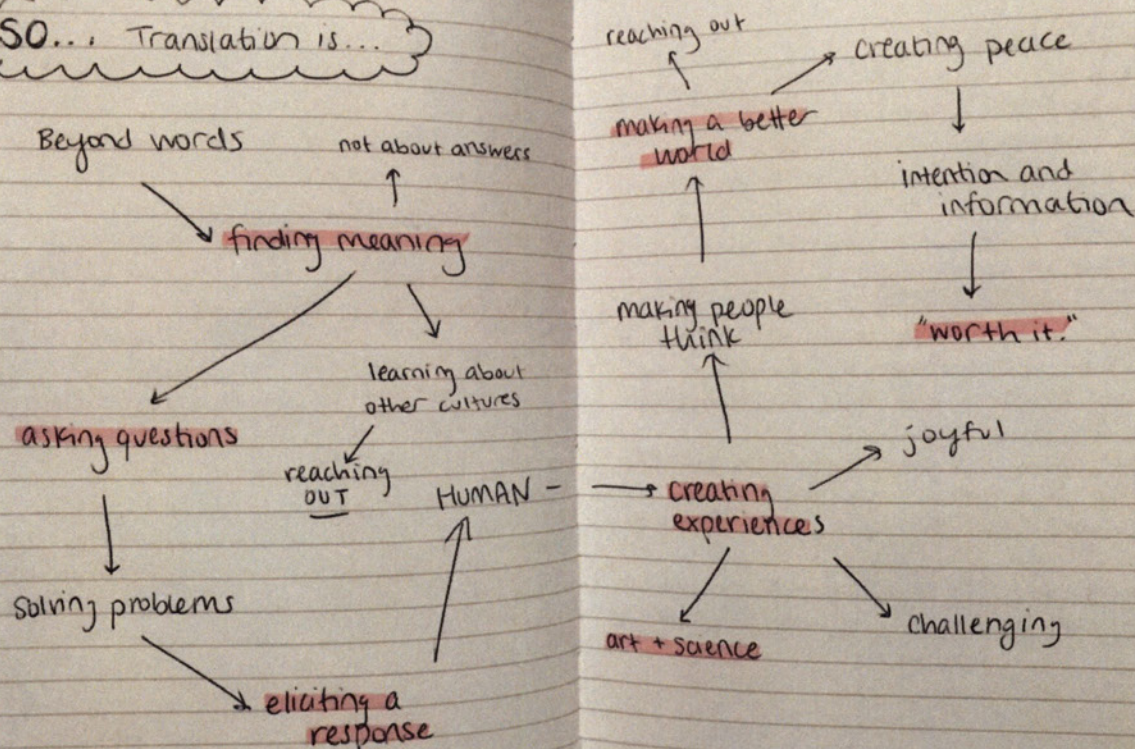 SO... Translation is...
Beyond words
not about answers
finding meaning
learning about
other cultures
asking questions
reaching
OUT
HUMAN -
solving problems
eliciting a
response
reaching out
creating peace
making a better
world
intention and
information
making people
think
"worth it."
joyful
creating
experiences
challenging
art + science